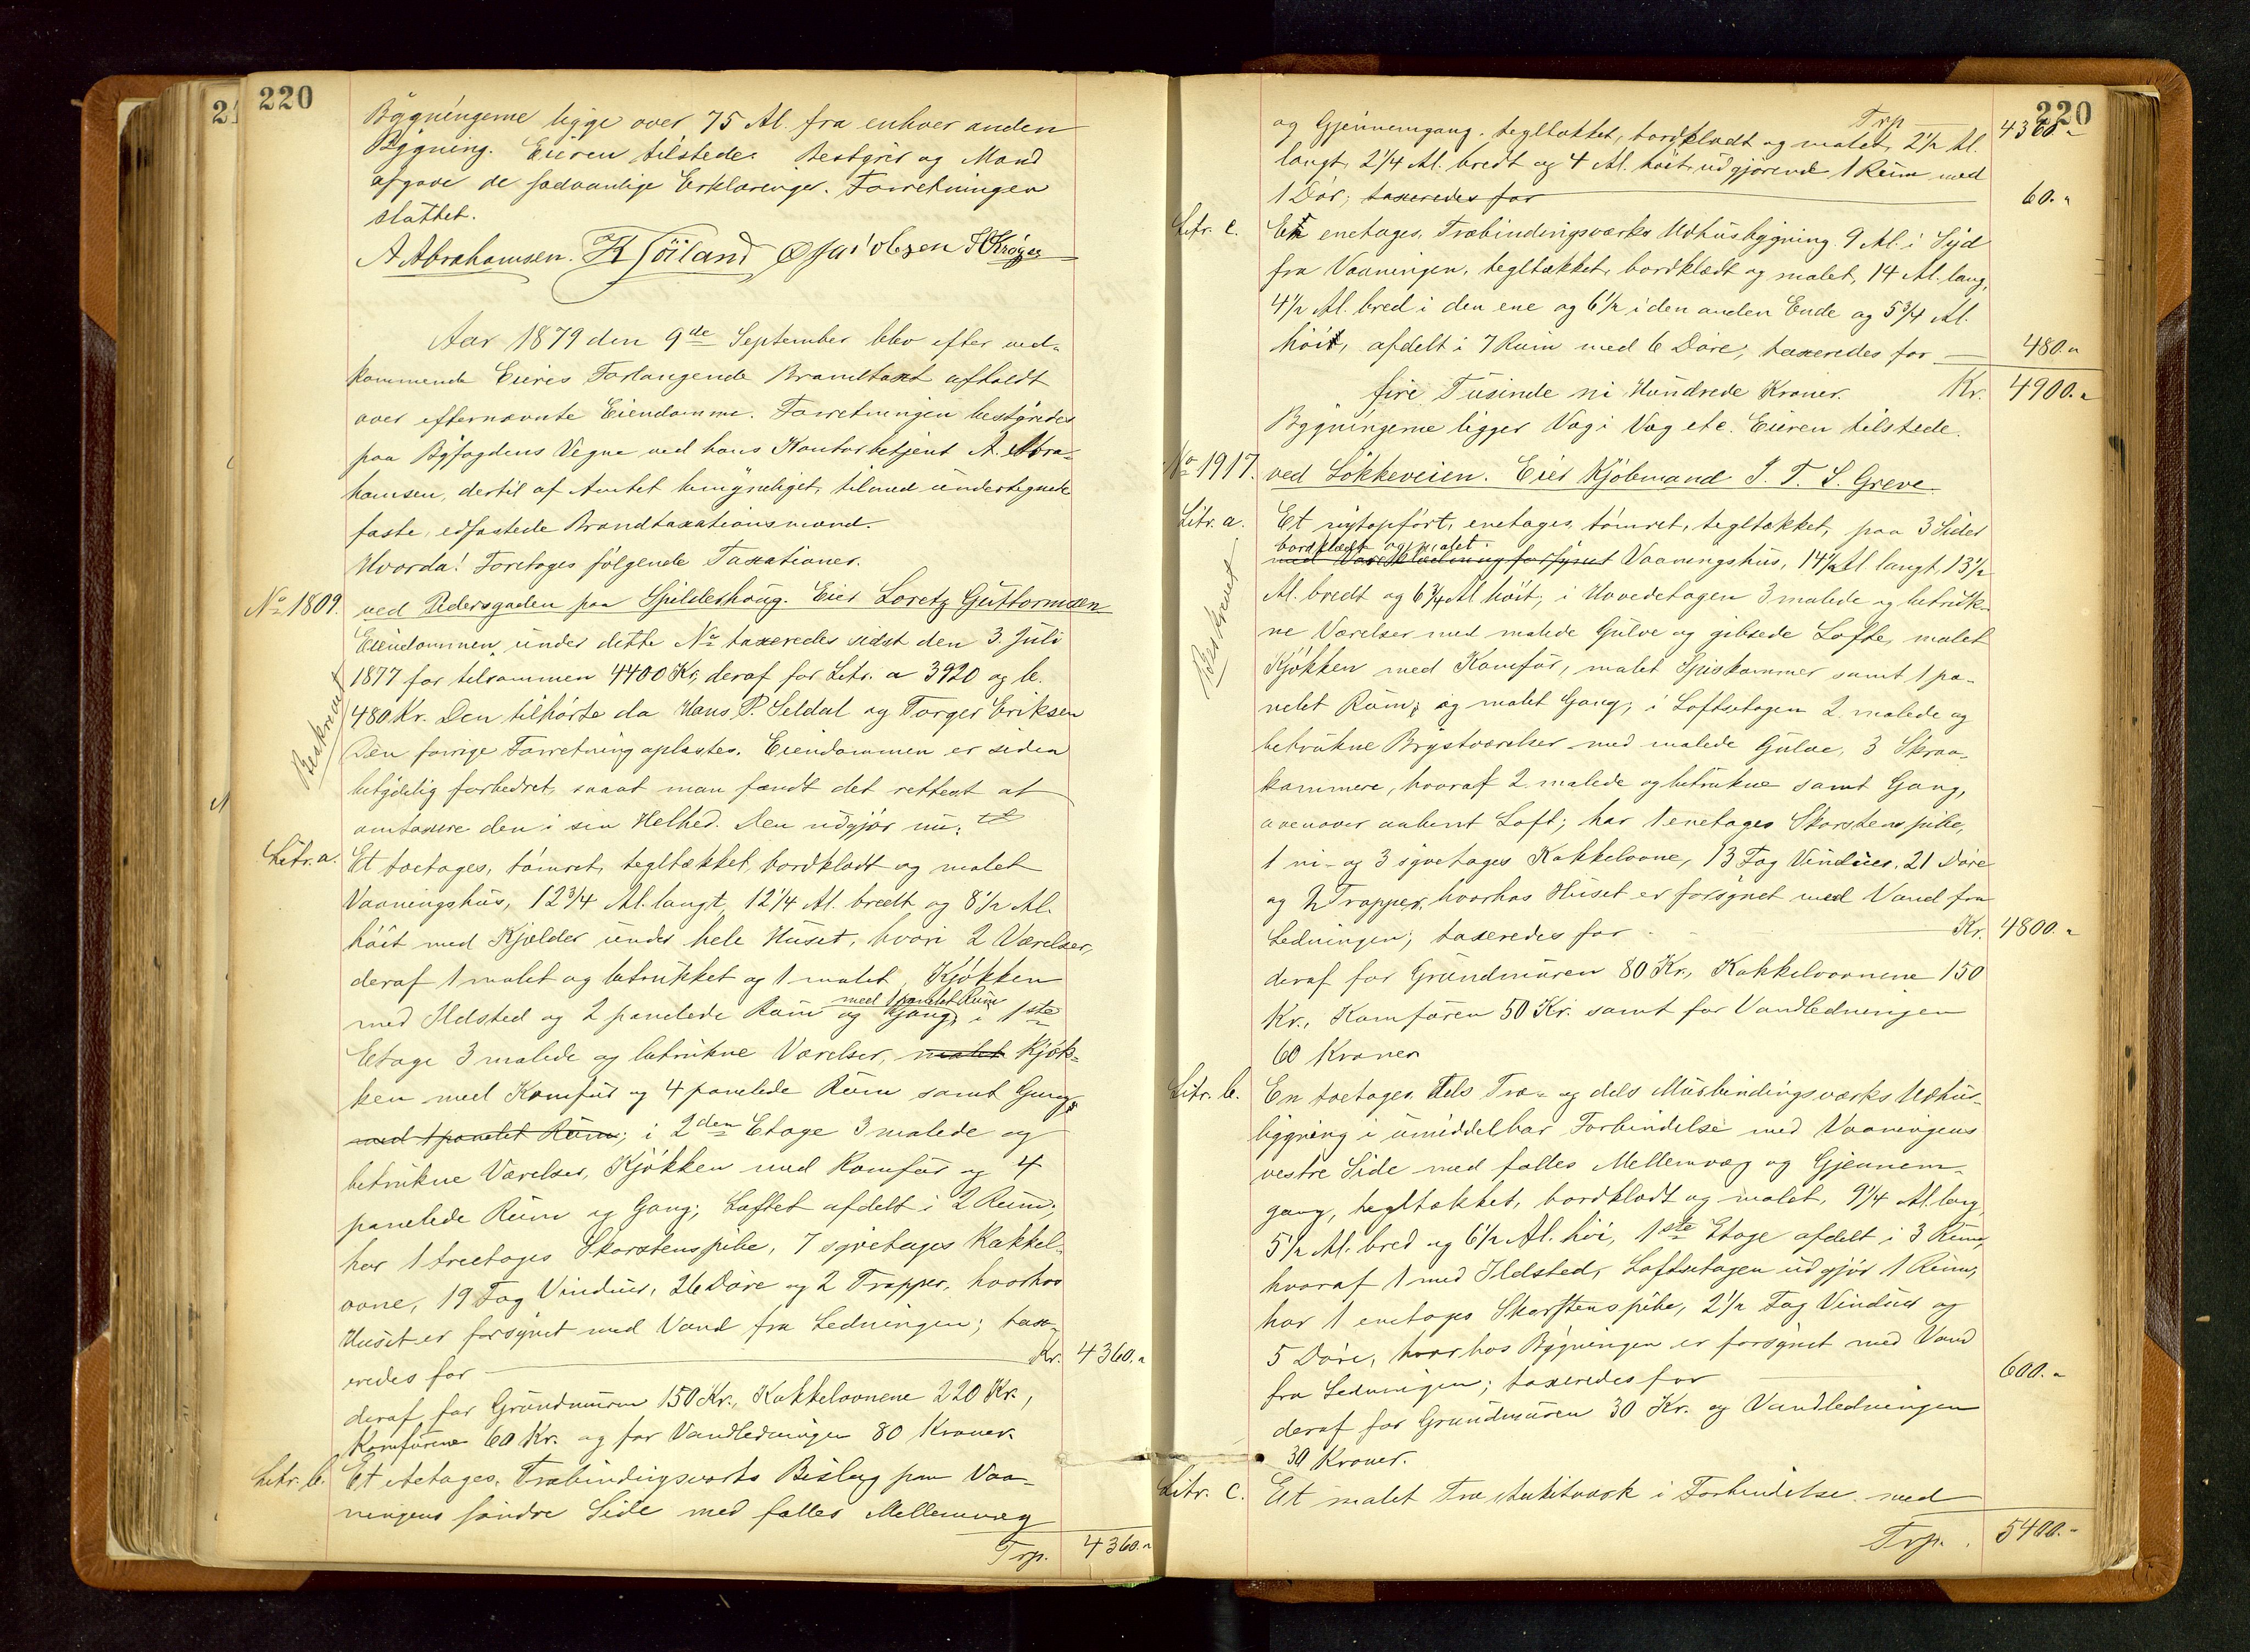 220
Bygningerne ligge over 75 Al. fra enhver anden
Bygning. Eieren tilstede. Bestyrer og Mænd
afgave de sædvanlige Erklæringer. Forretningen
sluttet.
A Abrahamsen. Jacobsen Krøger
Aar 1879 den 9de September blev efter ved-
kommende Eieres Forlangende Brandtaxt afholdt
over efternævnte Eiendomme. Forretningen bestyredes
paa Byfogdens Vegne ved hans Kontorbetjent A. Abra-
hamsen, dertil af Amtet bemyndiget, tilmed undertegnede
faste, edfæstede Brandtaxationsmænd.
Hvorda! Foretoges følgende Taxationer.
No 1809. ved Pedersgaden paa Spilderhaug. Eier Loretz Guttormsen
Eiendommen under dette No taxeredes sidst den 3. Juli
1877 for tilsammen 4400 Kr, deraf for Litr. a 3920 og b.
480 Kr. Den tilhørte da Hans P. Seldal og Torger Eriksen
Beskrevet
Den forrige Forretning oplæstes. Eiendommen er siden
betydelig forbedret, saaat man fandt det rettest at
omtaxere den i sin Helhed. Den udgjør nu:
Litr. a. Et toetages, tømret, tegltækket, bordklædt og malet
Vaaningshus, 12 3/4 Al. langt, 12 1/4 Al. bredt og 8 1/2 Al.
høit med Kjælder under hele Huset, hvori 2 Værelser,
deraf 1 malet og betrukket og 1 malet, Kjøkken
med 1 panelet Rum
med Ildsted og 2 panelede Rum og Gang; i 1ste
Etage 3 malede og betrukne Værelser, malet Kjøk-
ken med Komfur og 4 panelede Rum samt Gang
med 1 panelet Rum; i 2den Etage 3 malede og
betrukne Værelser, Kjøkken med Komfur og 4
panelede Rum og Gang; Loftet afdelt i 2 Rum;
har 1 treetages Skorstenspibe, 7 syvetages Kakkel-
ovne, 19 Fag Vinduer, 26 Døre og 2 Trapper, hvorhos
Huset er forsynet med Vand fra Ledningen; tax-
eredes for Kr. 4360.
deraf for Grundmuren 150 Kr., Kakkelovnene 220 Kr.,
Komfurene 60 Kr. og for Vandledningen 80 Kroner.
Litr. b. Et etetages, Træbindingsværks Bislag paa Vaa-
ningens søndre Side med fælles Mellemvæg
Trp. 4360.
220
Trp 4360
og Gjennemgang, tegltækket, bordklædt og malet, 2 1/2 Al.
langt, 2 1/4 Al. bredt og 4 Al. høit, udgjørende 1 Rum med
1 Dør; taxeredes for 60.
Litr. c. Et enetages, Træbindingsværks Udhusbygning 9 Al. i Syd
fra Vaaningen, tegltækket, bordklædt og malet, 14 Al. lang,
4 1/2 Al. bred i den ene og 6 1/2 i den anden Ende og 5 3/4 Al.
høit, afdelt i 7 Rum med 6 Døre, taxeredes for 480.
fire Tusinde ni Hundrede Kroner. Kr. 4900.
Bygningerne ligger Væg i Væg etc. Eieren tilstede.
No 1917. ved Løkkeveien. Eier Kjøbmand J. T. S. Greve.
Litr. a. Et nytopført, enetages, tømret, tegltækket, paa 3 Sider
bordklædt og malet
med Bordklædning forsynet Vaaningshus, 14 1/2 Al. langt, 13 1/2
Al. bredt og 6 3/4 Al høit; i Hovedetagen 3 malede og betruk-
Beskrevet
ne Værelser med malede Gulve og gibsede Lofte, malet
Kjøkken med Komfur, malet Spiskammer samt 1 pa-
nelet Rum, og malet Gang; i Loftsetagen 2 malede og
betrukne Brystværelser med malede Gulve, 3 Skraa-
kammere, hvoraf 2 malede og betrukne samt Gang,
ovenover aabent Loft; har 1 enetages Skorstenspibe,
1 ni- og 3 syvetages Kakkelovne, 13 Fag Vinduer, 21 Døre
og 2 Trapper, hvorhos Huset er forsynet med Vand fra
Ledningen; taxeredes for Kr. 4800.
deraf for Grundmuren 80 Kr., Kakkelovnene 150
Kr., Komfuren 50 Kr. samt for Vandledningen
60 Kroner
Litr. b. En toetages, dels Træ- og dels Murbindingsværks Udhus-
bygning i umiddelbar Forbindelse med Vaaningens
vestre Side med fælles Mellemvæg og Gjennem-
gang, tegltækket, bordklædt og malet, 9 1/4 Al. lang
5 1/2 Al. bred og 6 1/2 Al. høi, 1ste Etage afdelt i 3 Rum,
hvoraf 1 med Ildsted, Loftsetagen udgjør 1 Rum;
har 1 enetages Skorstenspibe, 2 1/2 Fag Vinduer og
5 Døre, hvorhos Bygningen er forsynet med Vand
fra Ledningen; taxeredes for 600.
deraf for Grundmuren 30 Kr. og Vandledningen
30 Kroner.
Litr. c. Et malet Træ Stakitværk i Forbindelse med
Trp. 5400.